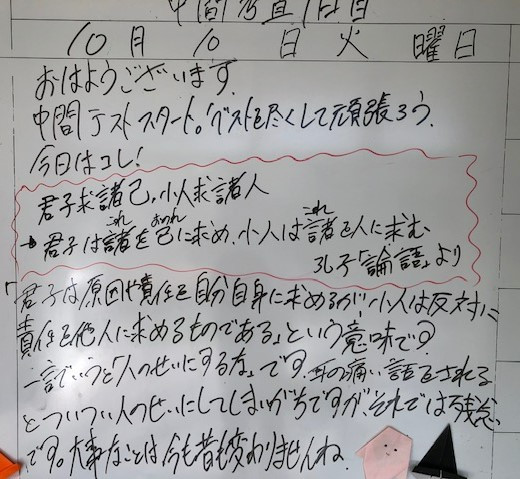 中間考査1日目
10月10日火曜日
おはようございます。
中間テストスタート。ベストを尽くして頑張ろう。
今日はコレ!
君子求諸己,小人求諸人
これ おのれ これ
→君子は諸を己に求め、小人は諸を人に求む
孔子「論語」より
「君子は原因や責任を自分自身に求めるが小人は反対に
責任を他人に求めるものである」という意味です。
一言でいうと「人のせいにするな」です。耳の痛い話をされる
とついつい人のせいにしてしまいがちですがそれでは残念
です。大事なことは今も昔も変わりませんね。